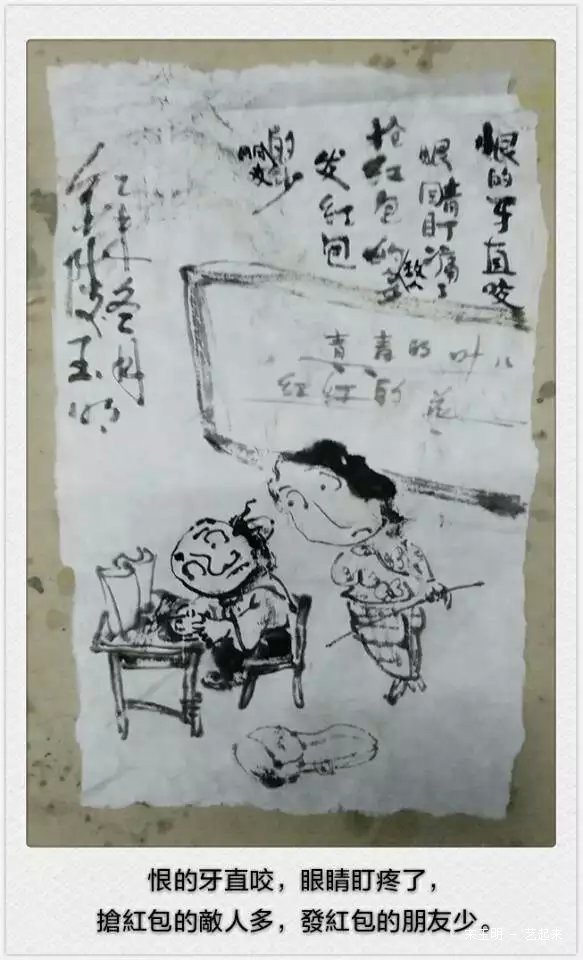 恨的牙直咬
眼睛盯痛了
抢红包的多
敌人
发红包
的少
朋友
乙未年冬月
金陵
玉明
青青的叶儿
红红的花
恨的牙直咬，眼睛盯疼了，
搶紅包的敵人多，發紅包的朋友少。